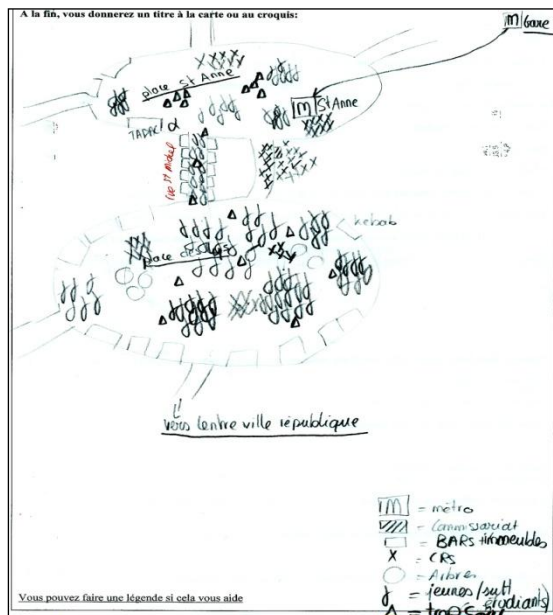 A la fin, vous donnerez un titre à la carte ou au croquis:
M Gare
place St Anne
M St Anne
TABAC
rue St Michel
kebab
place des Lys
vers Centre ville république
M = métro
= Commissariat
= BARS + immeubles
X = CRS
= Arbres
= jeunes/surtt étudiants
Vous pouvez faire une légende si cela vous aide